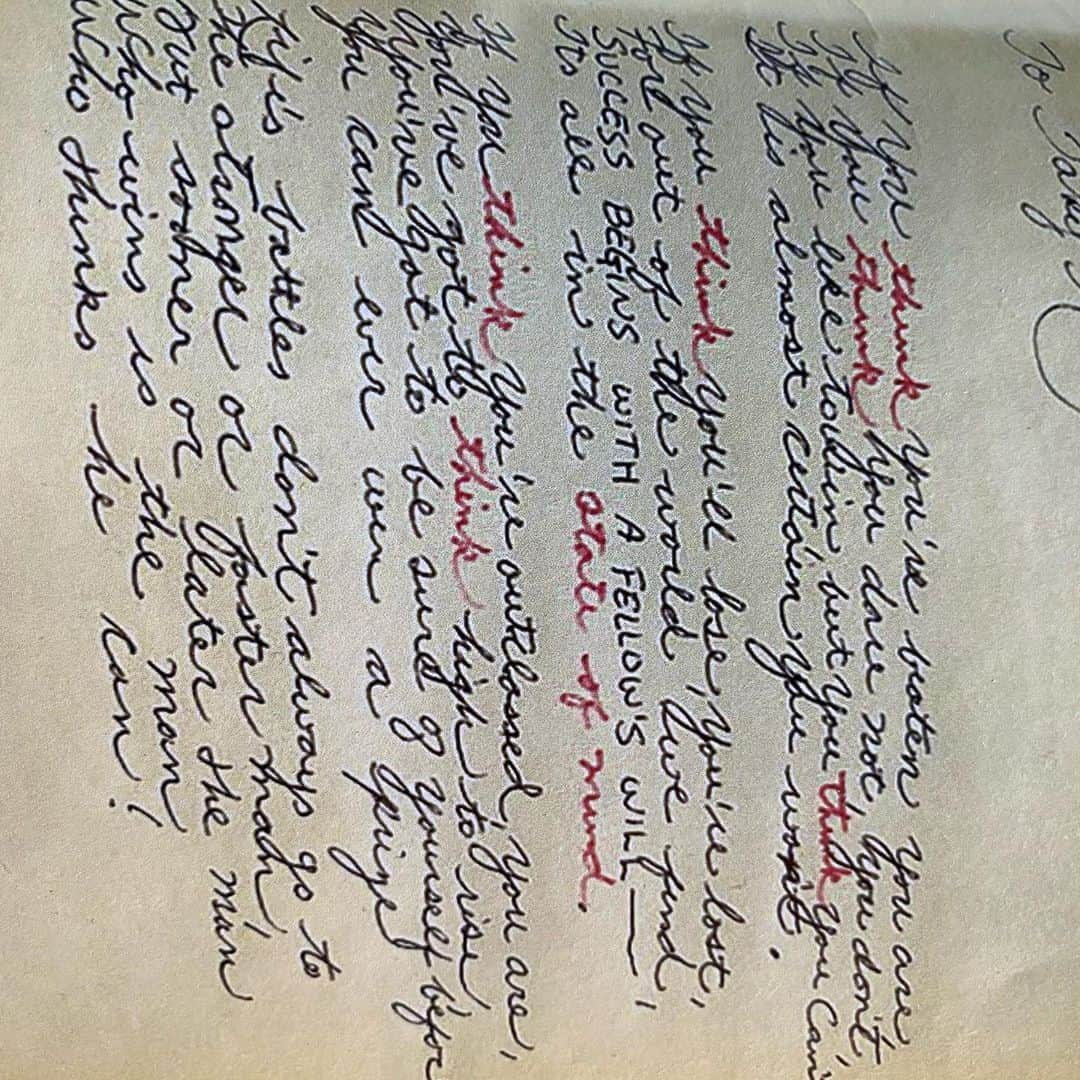 To
If you think you're beaten you are
If you think you dare not, you don't,
If you like to win but you think you can't
It is almost certain you won't.
If you think you'll lose, you're lost,
For out of the world we find,
SUCCESS BEGINS WITH A FELLOW'S WILL—
Its all in the state of mind.
If you think you're outclassed, you are,
You've got to think high to rise,
You've got to be sure of yourself before
You can ever win a prize
Life's battles don't always go to
the stronger or faster man,
But sooner or later the man
who wins is the man
who thinks he can!